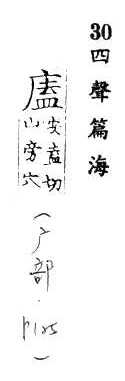 30四聲篇海
廅
安盍切
山旁穴
(广部.P125)